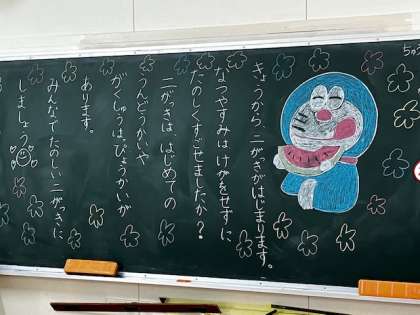 きょうから、二がっきがはじまります。
なつやすみはけがをせずに
たのしくすごせましたか？
二がっきは、はじめての
うんどうかいや
がくしゅうはっぴょうかいが
あります。
みんなでたのしい二がっきに
しましょう